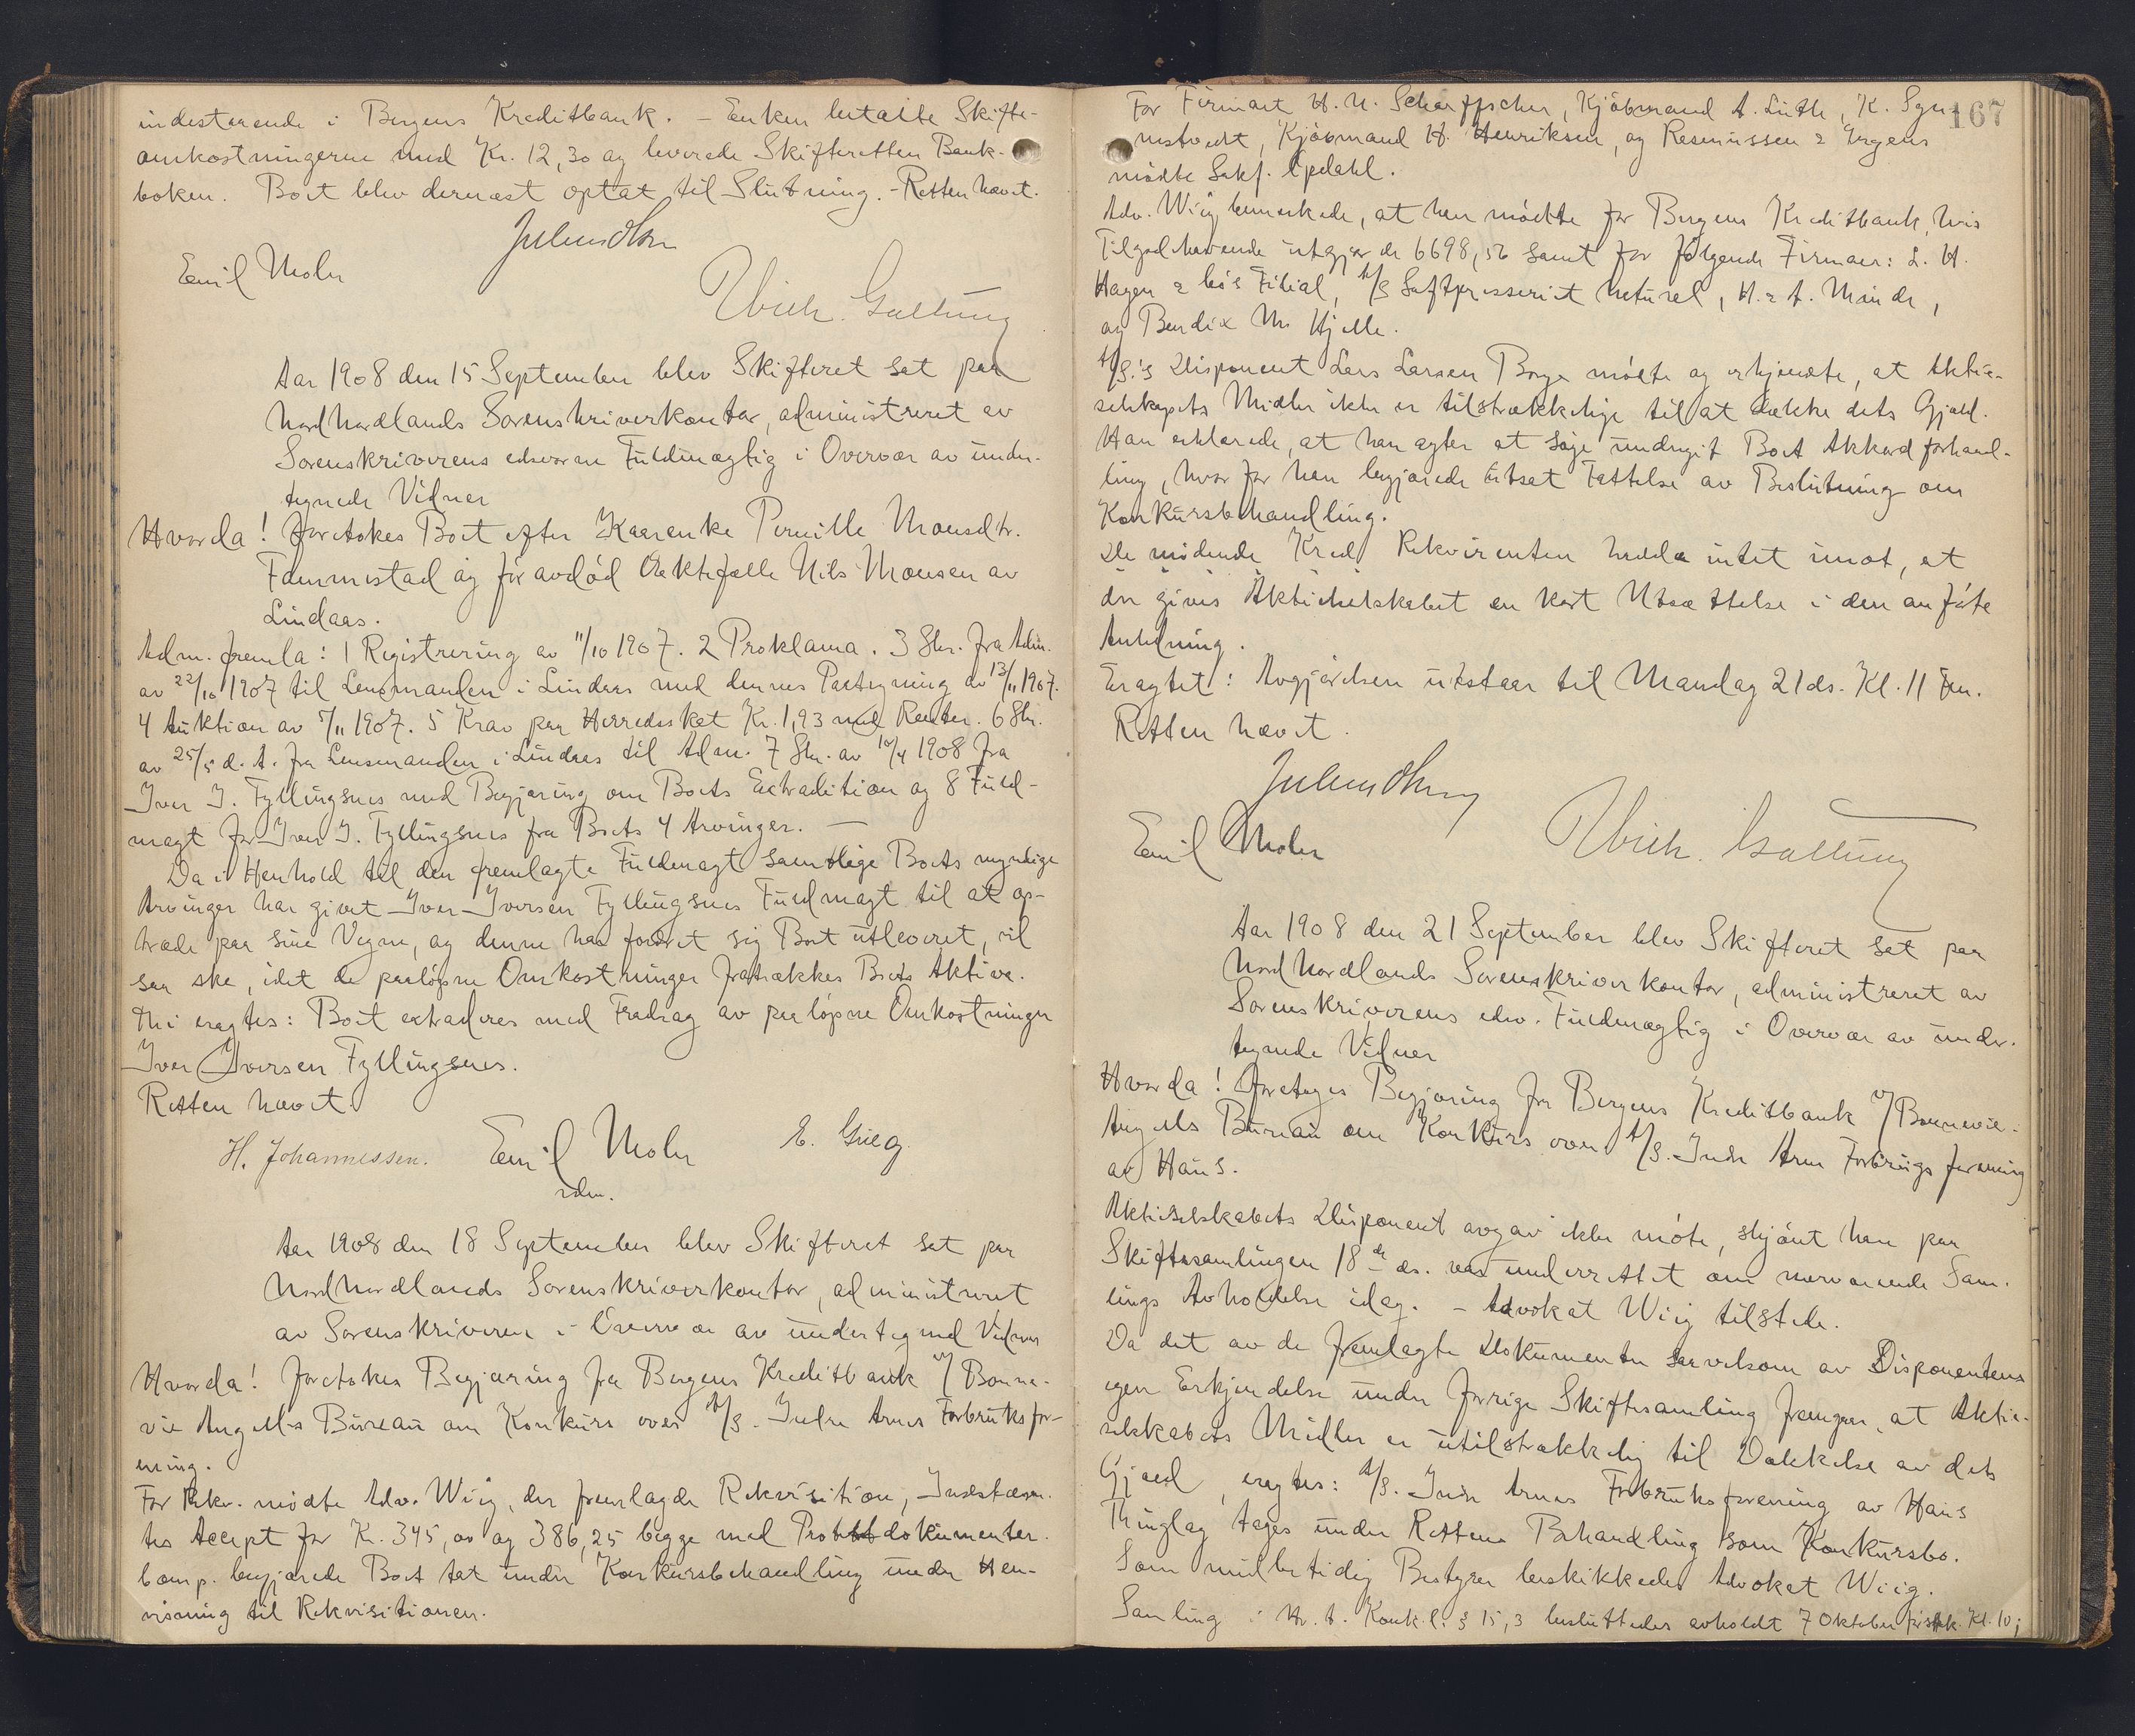 indestaaende i Bergens Kreditbank. – Enken betalte Skifte-
omkostningerne med Kr. 12,30 og leverede Skifteretten Bank-
boken. Boet blev dernæst optat til Slutning. – Retten hævet.
Julius Olsen
Emil Mohr
Ulrich Galtung
Aar 1908 den 15 September blev Skifteret sat paa
Nordhordlands Sorenskriverkontor, administreret av
Sorenskriverens edsvorne Fuldmægtig i Overvær av under-
tegnede Vidner
Hvorda! foretokes Boet efter Kaarenke Pernille Monsdtr.
Fammestad og før avdød Ægtefælle Nils Monsen av
Lindaas.
Adm. fremla: 1 Registrering av 11/10 1907. 2 Proklama. 3 Skr. fra Adm.
av 22/10 1907 til Lensmanden i Lindaas med dennes Paategning av 13/11 1907.
4 Auktion av 5/11 1907. 5 Krav paa Herredsskat Kr. 1,93 med Renter. 6 Skr.
av 25/5 d. A. fra Lensmanden i Lindaas til Adm. 7 Skr. av 10/4 1908 fra
Iver I. Fyllingsnes med Begjæring om Boets Extradition og 8 Fuld-
magt for Iver I. Fyllingsnes fra Boets 4 Arvinger. –
Da i Henhold til den fremlagte Fuldmagt samtlige Boets myndige
Arvinger har givet Iver Iversen Fyllingsnes Fuldmagt til at op-
træde paa sine Vegne, og denne har fordret sig Boet utleveret, vil
saa ske, idet de paaløpne Omkostninger fratrækkes Boets Aktiva.
Thi eragtes: Boet extraderes med Fradrag av paaløpne Omkostninger
Iver Iversen Fyllingsnes.
Retten hævet.
H. Johannessen. Emil Mohr E. Grieg
Aar 1908 den 18 September blev Skifteret sat paa
Nordhordlands Sorenskriverkontor, administreret
av Sorenskriveren i Overvær av undertegned Vidner
Hvorda! foretokes Begjæring fra Bergens Kreditbank v/ Bonne-
vie Angells Bureau om Konkurs over A/S. Indre Arnes Forbruksfor-
ening.
For Rekv. mødte Adv. Wiig, der fremlagde Rekvisition, Indstævn-
tes Accept for Kr. 345,00 og 386,25 begge med Protestdokumenter.
Comp. begjærede Boet tat under Konkursbehandling under Hen-
visning til Rekvisitionen.
167
For Firmaet H. N. Scharffscher, Kjøbmand A. Lütle, K. Syn-
nestvedt, Kjøbmand H. Henriksen, og Rasmussen & Irgens
mødte Sakf. Opdahl.
Adv. Wiig bemerkede, at han mødte for Bergens Kreditbank, hvis
Tilgodehavende utgjør de 6698,56 samt for følgende Firmaer: L. H.
Hagen & Co's Filial, A/S Saftpresseriet Naturel, H. & A. Minde,
og Bendix M. Hjelle.
A/S.'s Disponent Lars Larsen Borge mødte og erkjendte, at Aktie-
selskapets Midler ikke er tilstrækkelige til at dække dets Gjæld.
Han erklærede, at han agter at søge undergit Boet Akkordforhand-
ling, hvorfor han begjærede Utsat Fattelse av Beslutning om
Konkursbehandling.
De mødende Kred. Rekvirenten hadde intet imot, at
der gives Aktieselskabet en kort Utsættelse i den anførte
Anledning.
Eragtet: Avgjørelsen utstaar til Mandag 21 ds. Kl. 11 Fm.
Retten hævet.
Julius Olsen
Emil Mohr
Ulrich. Galtung
Aar 1908 den 21 September blev Skifteret sat paa
Nordhordlands Sorenskriverkontor, administreret av
Sorenskriverens edsv. Fuldmægtig i Overvær av under-
tegnede Vidner
Hvorda! foretoges Begjæring fra Bergens Kreditbank v/ Bonnevie-
Angells Bureau om Konkurs over A/S. Indre Arne Forbrugsforening
av Haus.
Aktieselskabets Disponent avgav ikke møte, skjønt han paa
Skiftesamlingen 18de ds. var underrettet om nærværende Sam-
lings Avholdelse idag. – Advokat Wiig tilstede.
Da det av de fremlagte Dokumenter saavelsom av Disponentens
egen Erkjendelse under forrige Skiftesamling fremgaar, at Aktie-
selskabets Midler er utilstrækkelig til Dækkelse av dets
Gjæld, eragtes: A/S. Indre Arnes Forbruksforening av Haus
Thinglag tages under Rettens Behandling som Konkursbo.
Som midlertidig Bestyrer beskikkedes Advokat Wiig.
Samling i H. t. Konk.l. § 15,3 besluttedes avholdt 7 Oktober førstk. Kl. 10;